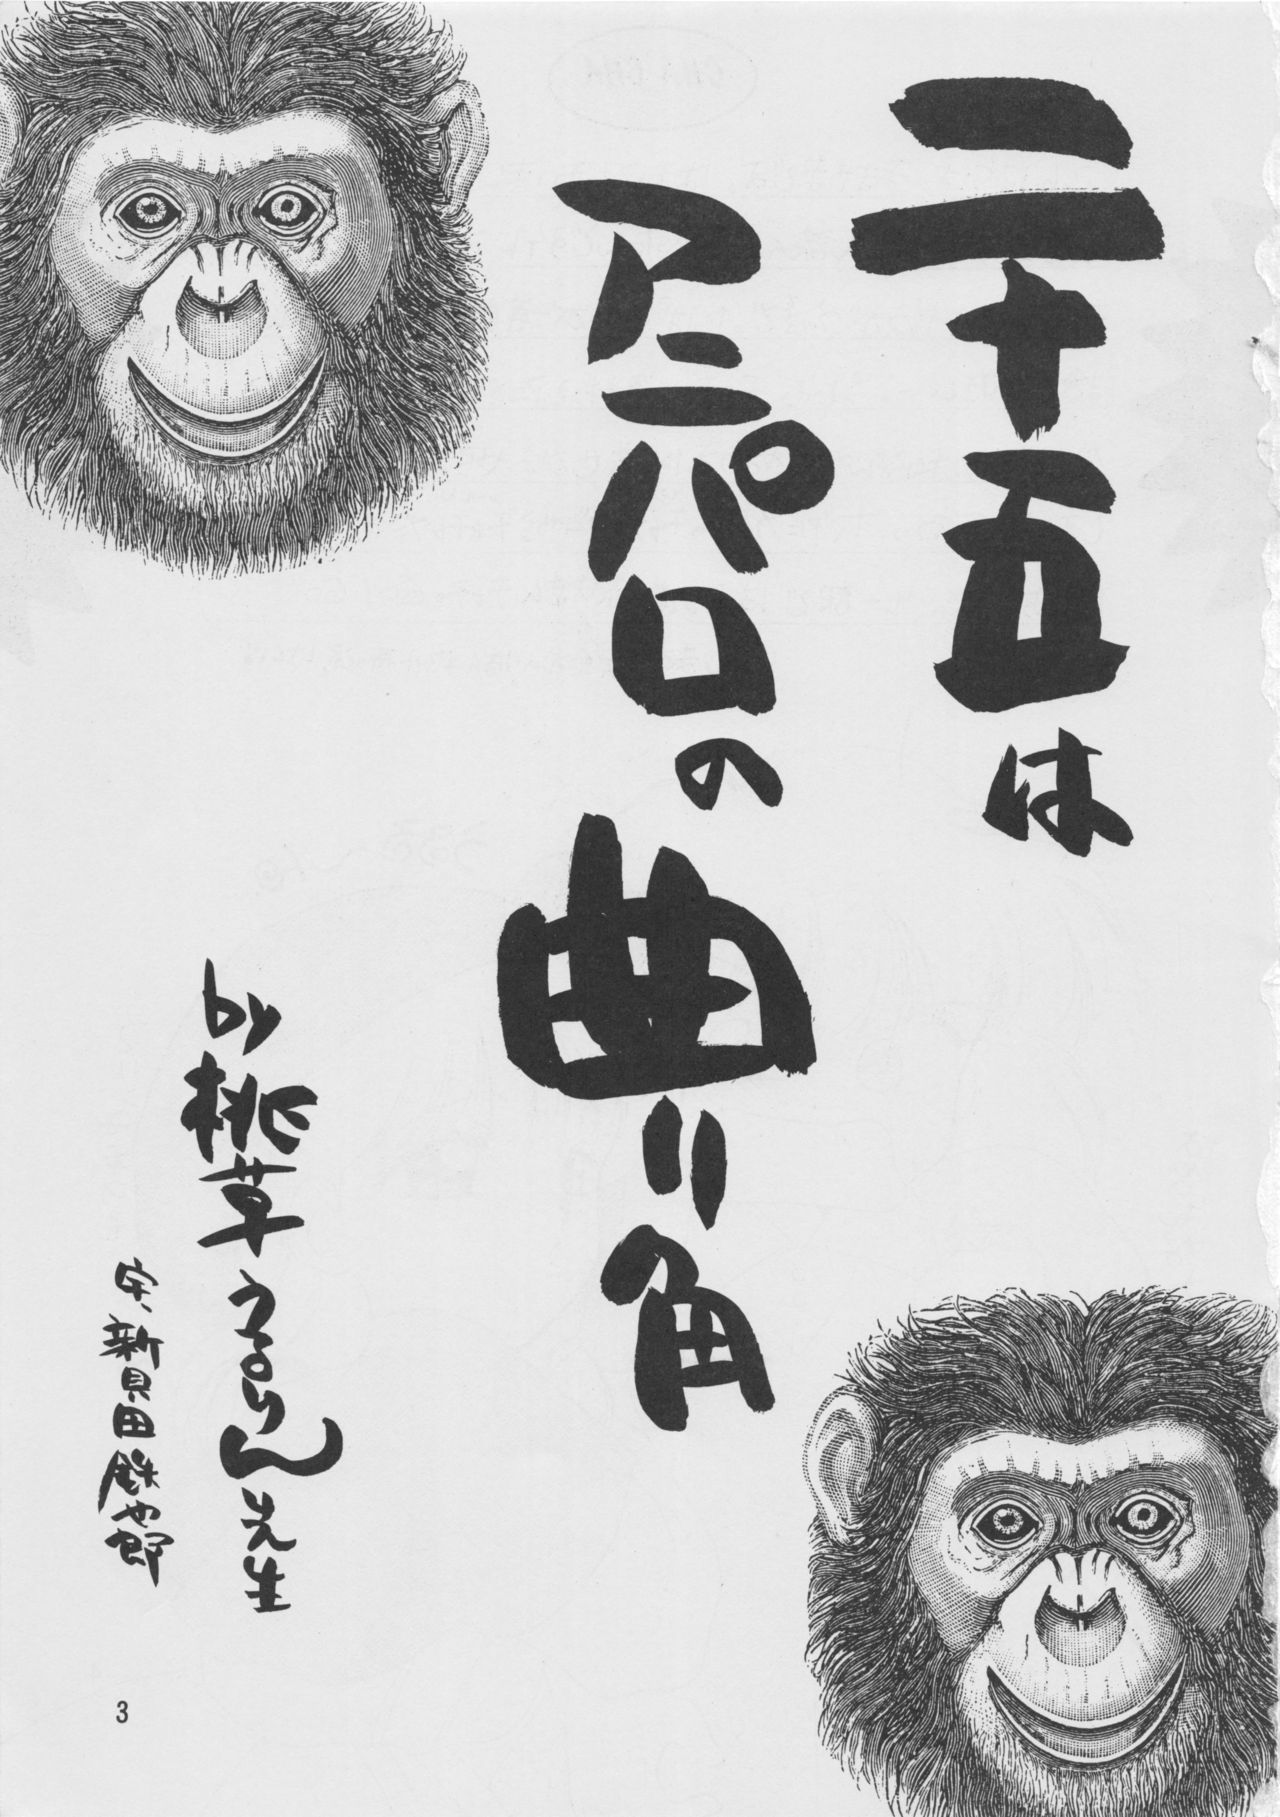 二十五は
アニパロの
曲り角
by 桃草うろん先生
字、新貝田鉄也郎
3